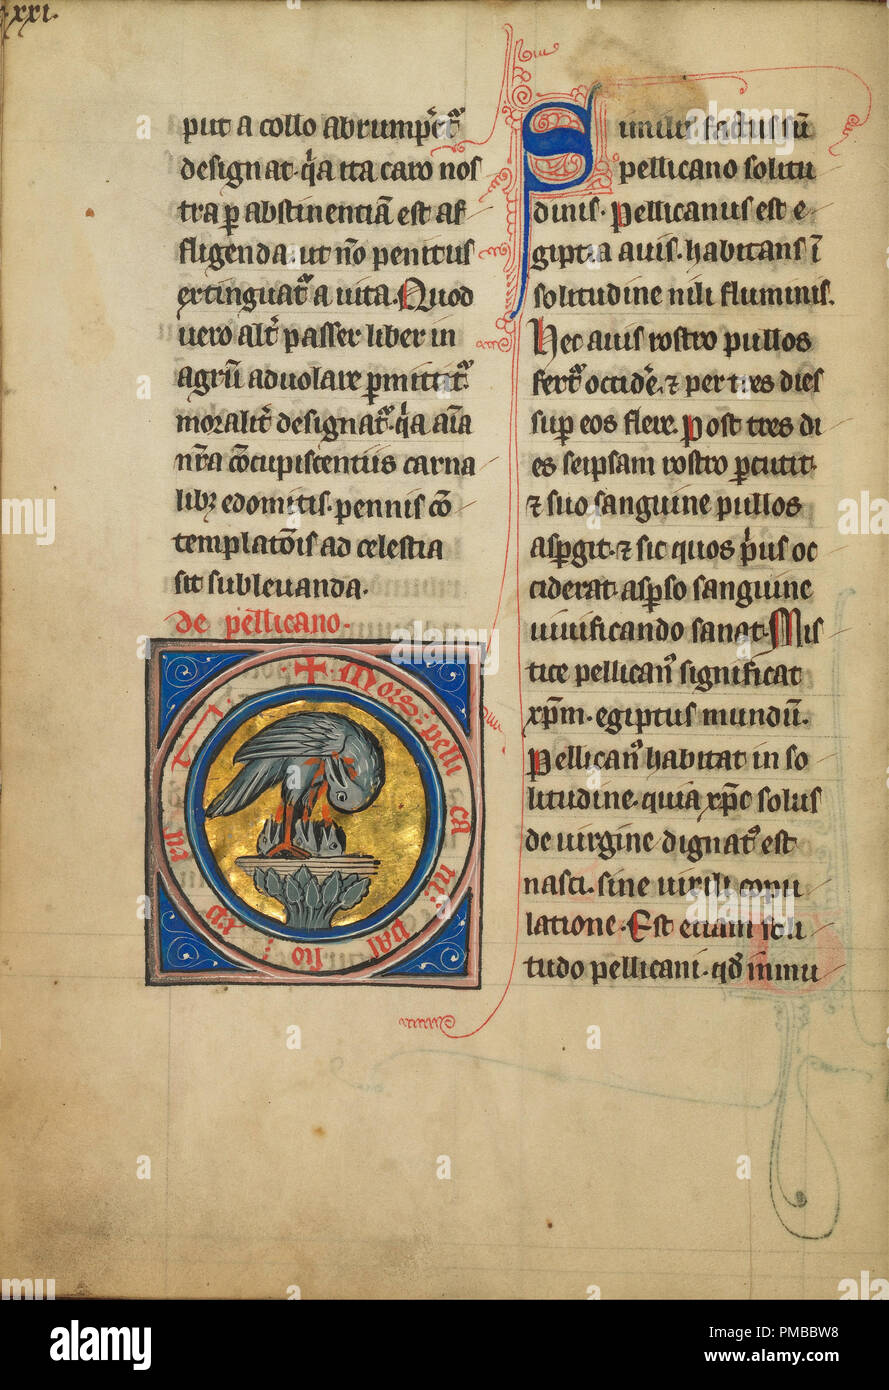 xxi.
put a collo abrump̃et᷑
designat. q̃a ita caro nos
tra ꝑ abstinentiã est af
fligenda. ut nõ penitus
extinguat᷑ a uita. Quod
uero alt̃ passer liber in
agrũ aduolare ꝑmittit᷑.
moralit̃ designat᷑. q̃a aĩa
nr̃a ↄ̃cupiscentiis carna
libꝫ edomitis. pennis cõ
templatõis ad celestia
sit subleuanda.
de pellicano.
✝ Mors: pelli ca ni: pas sio:
Similis factus sũ
pellicano solitu
dinis. Pellicanus est e
gipti a auis. habitans ĩ
solitudine nili fluminis.
Hec auis rostro pullos
fert᷑ occide᷑. ⁊ per tres dies
suꝑ eos flere. Post tres di
es seipsam rostro ꝑcutit.
⁊ suo sanguine pullos
asꝑgit. ⁊ sic quos p̃us oc
ciderat. asꝑso sanguine
uiuificando sanat. Mis
tice pellican᷑ significat
xp̃m. egiptus mundũ.
Pellican᷑ habitat in so
litudine. quia xp̃c solus
de uirgine dignat᷑ est
nasci. sine uirili copu
latione. Est etiam soli
tudo pellicani. qd̃ inmu
alamy
Image ID: PMBBW8
www.alamy.com